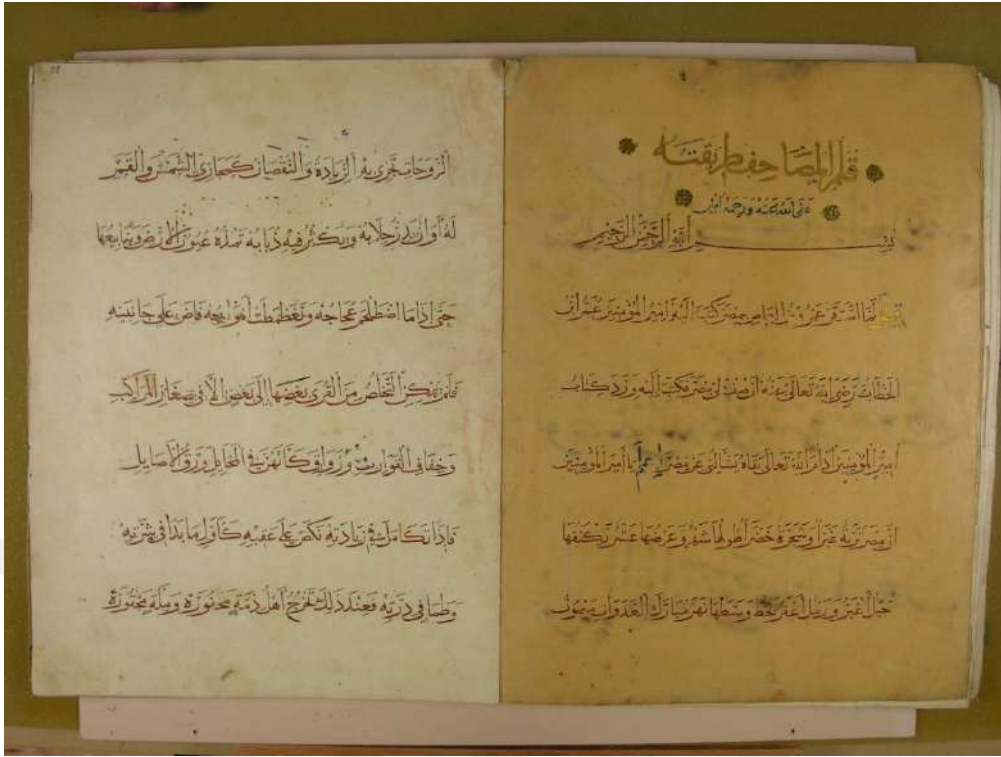 قلم المصاحف طريقته
رضي الله عنه ورحمة الله
بسم الله الرحمن الرحيم
قيل لما استقر عمرو بن العاص بمصر كتب اليه امير المؤمنين عمر ابن
الخطاب رضي الله تعالى عنه ان صف لي مصر فكتب اليه ورد كتاب
امير المؤمنين ادام الله تعالى بقاه يسالني عن مصر اعلم يا امير المؤمنين
ان مصر تربة غبرا وشجرة خضرا طولها شهر وعرضها عشر يكنفها
جبل اغبر ورمل اعفر يخط وسطها نهر مبارك الغدوات ميمون
الروحات يجري به الزيادة والنقصان كمجاري الشمس والقمر
له اوان تدر حلابه ويكثر فيه ذبابه تمده عيون الارض وينابيعها
حتى اذا ما اضطلخم عجاجه وتغطمطت امواجه فاض على جانبيه
فلم يمكن التخلص من القرى بعضها الى بعض الا في صغار المراكب
وخفاف القوارب وزوارق كانهن في المخايل ورق الاصايل
فاذا تكامل في زيادته نكص على عقبه كاول ما بدا في شرته
وطما في درته فعند ذلك تخرج اهل ذمة محقورة وملة مخفورة